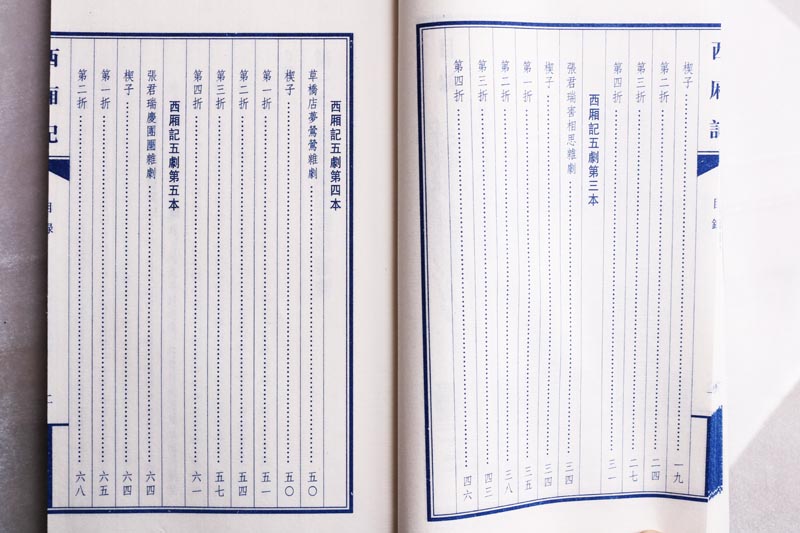 西厢記
目錄
楔子……一九
第二折……二四
第三折……二七
第四折……三一
西厢記五劇第三本
張君瑞害相思雜劇……三四
楔子……三四
第一折……三五
第二折……三八
第三折……四三
第四折……四六
西厢記五劇第四本
草橋店夢鶯鶯雜劇……五〇
楔子……五〇
第一折……五一
第二折……五四
第三折……五七
第四折……六一
西厢記五劇第五本
張君瑞慶團圞雜劇……六四
楔子……六四
第一折……六五
第二折……六八
西厢記
目錄